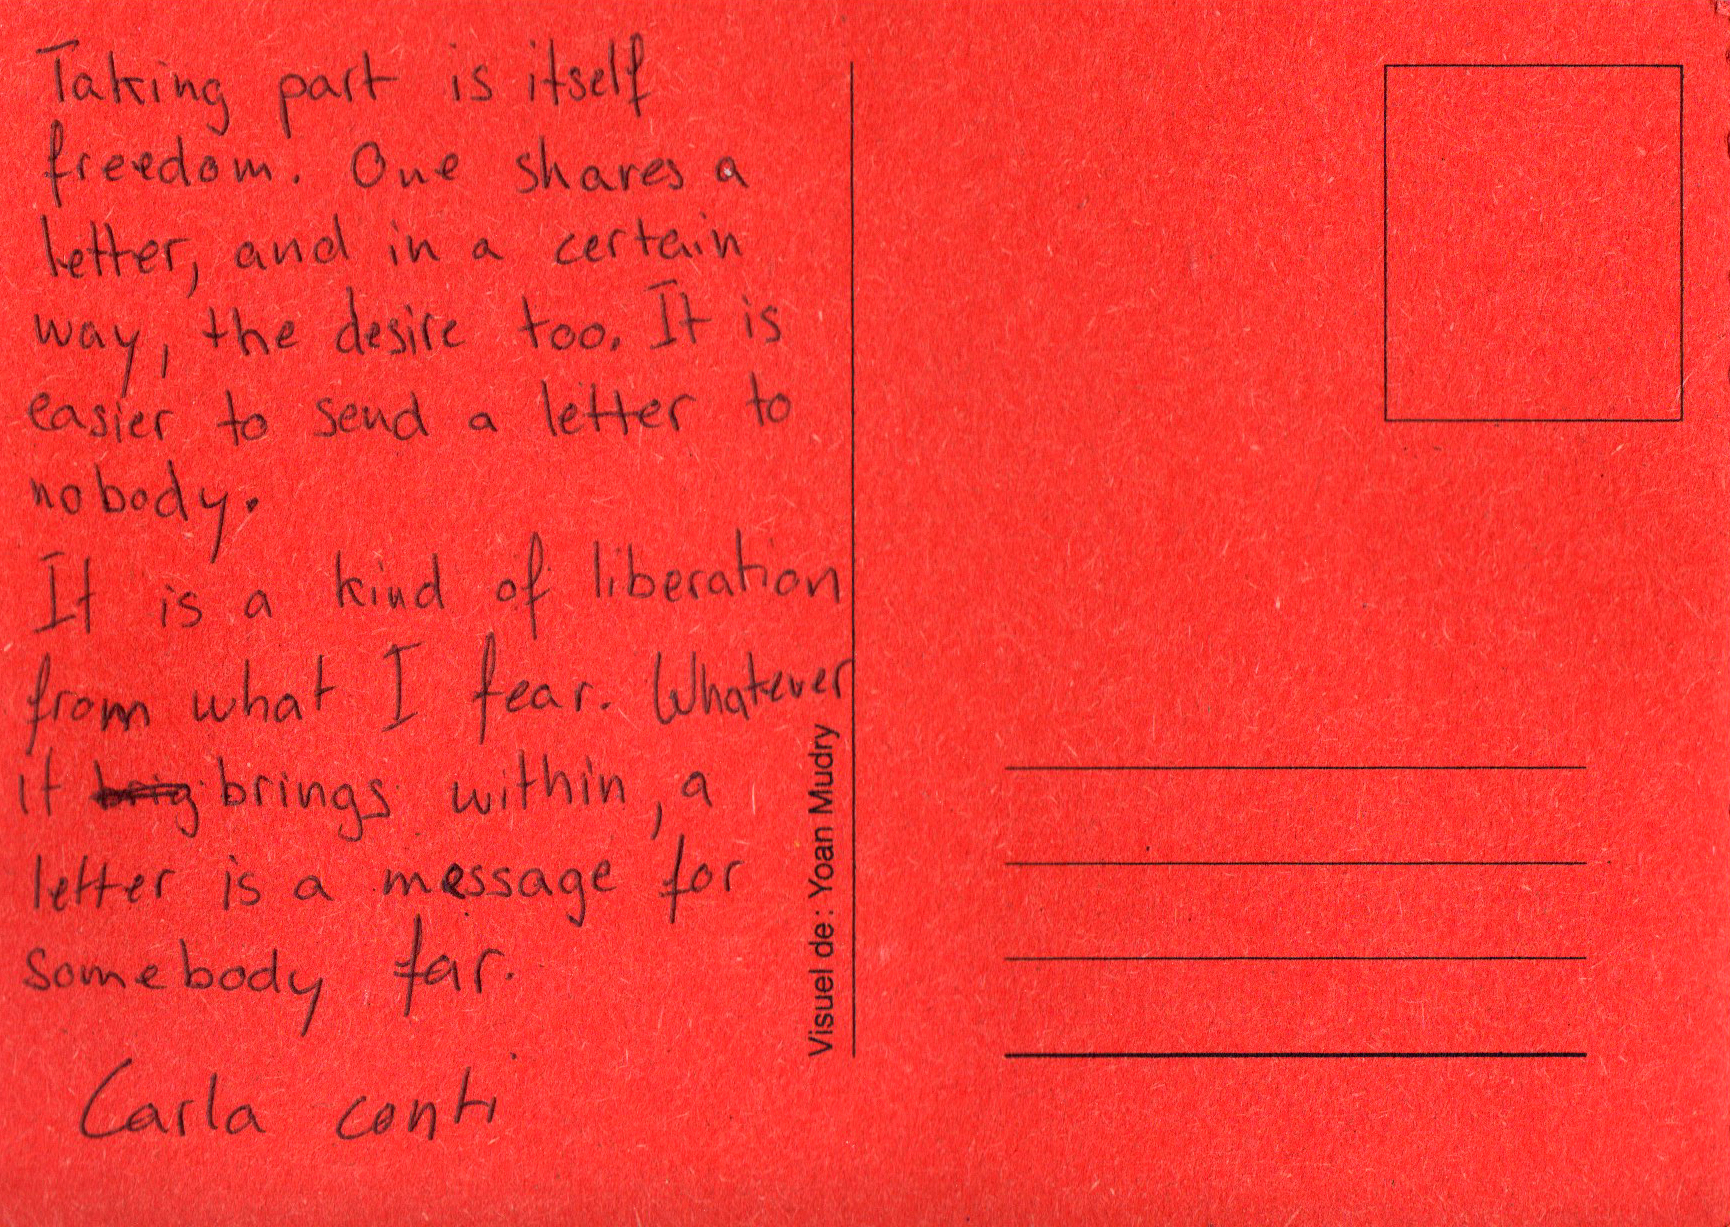 Taking part is itself
freedom. One shares a
letter, and in a certain
way, the desire too. It is
easier to send a letter to
nobody.
It is a kind of liberation
from what I fear. Whatever
it brings within, a
letter is a message for
somebody far.
Carla conti
Visuel de : Yoan Mudry